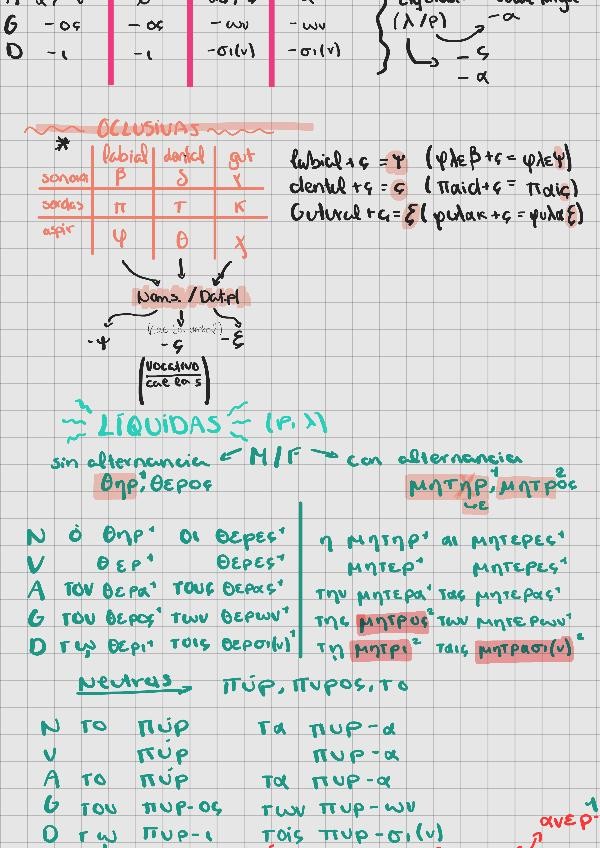 G -ος -ος -ων -ων (λ/ρ) -α
D -ι -ι -σι(ν) -σι(ν) -ς
-α
OCLUSIVAS
*
labial dental gut
sonora β δ γ
sordas π τ κ
aspir φ θ χ
labial+ς = ψ (φλεβ+ς = φλεψ)
dental+ς = ς (παιd+ς = παις)
Gutural+ς = ξ (φυλακ+ς = φυλαξ)
Nom s. / Dat.pl
-ψ -ς -ξ
(vocativo
cae la s)
LÍQUIDAS (ρ, λ)
sin alternancia M/F con alternancia
θηρ¹, θερος μητηρ¹, μητρος²
ε
N ὁ θηρ¹ οι θερες¹ η μητηρ¹ αι μητερες¹
V θερ¹ θερες¹ μητερ¹ μητερες¹
A τον θερα¹ τους θερας¹ την μητερα¹ τας μητερας¹
G του θερος¹ των θερων¹ της μητρος² των μητερων¹
D τῳ θερι¹ τοις θερσι(ν)¹ τῃ μητρι² ταις μητρασι(ν)²
Neutras πύρ, πυρος, το
N το πύρ τα πυρ-α
V πύρ πυρ-α
A το πύρ τα πυρ-α
G του πυρ-ος των πυρ-ων
D τῳ πυρ-ι τοις πυρ-σι(ν)
ανερ-¹